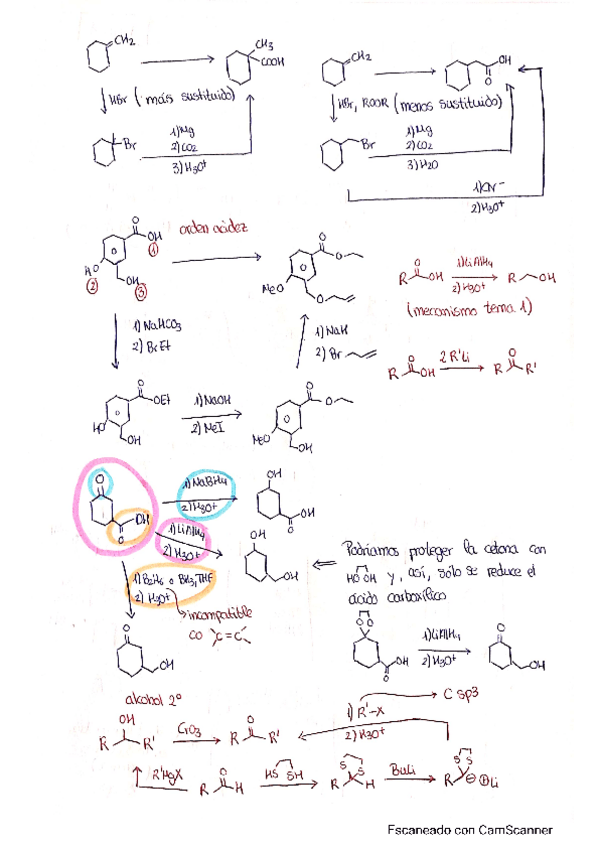 CH2
CH3
COOH
CH2
OH
O
HBr (más sustituido)
HBr, ROOR (menos sustituido)
Br
1) Mg
2) CO2
3) H3O+
Br
1) Mg
2) CO2
3) H2O
1) CN-
2) H3O+
O
OH
①
orden acidez
HO
②
OH
③
O
O
MeO
O
O
R OH
1) LiAlH4
2) H3O+
R OH
(mecanismo tema 1)
1) NaHCO3
2) BrEt
1) NaH
2) Br
O
R OH
2 R'Li
O
R R'
O
OEt
HO
OH
1) NaOH
2) MeI
O
O
MeO
OH
O
OH
O
1) NaBH4
2) H3O+
OH
OH
O
1) LiAlH4
2) H3O+
OH
OH
Podríamos proteger la cetona con
HO OH y, así, sólo se reduce el
ácido carboxílico
1) B2H6 o BH3, THF
2) H3O+
incompatible
CO C=C
O
OH
O O
OH
O
1) LiAlH4
2) H3O+
O
OH
alcohol 2º
OH
R R'
CrO3
O
R R'
1) R'-X
2) H3O+
C sp3
R'MgX
O
R H
HS SH
S S
R H
BuLi
S S
R ⊖ ⊕Li
Escaneado con CamScanner